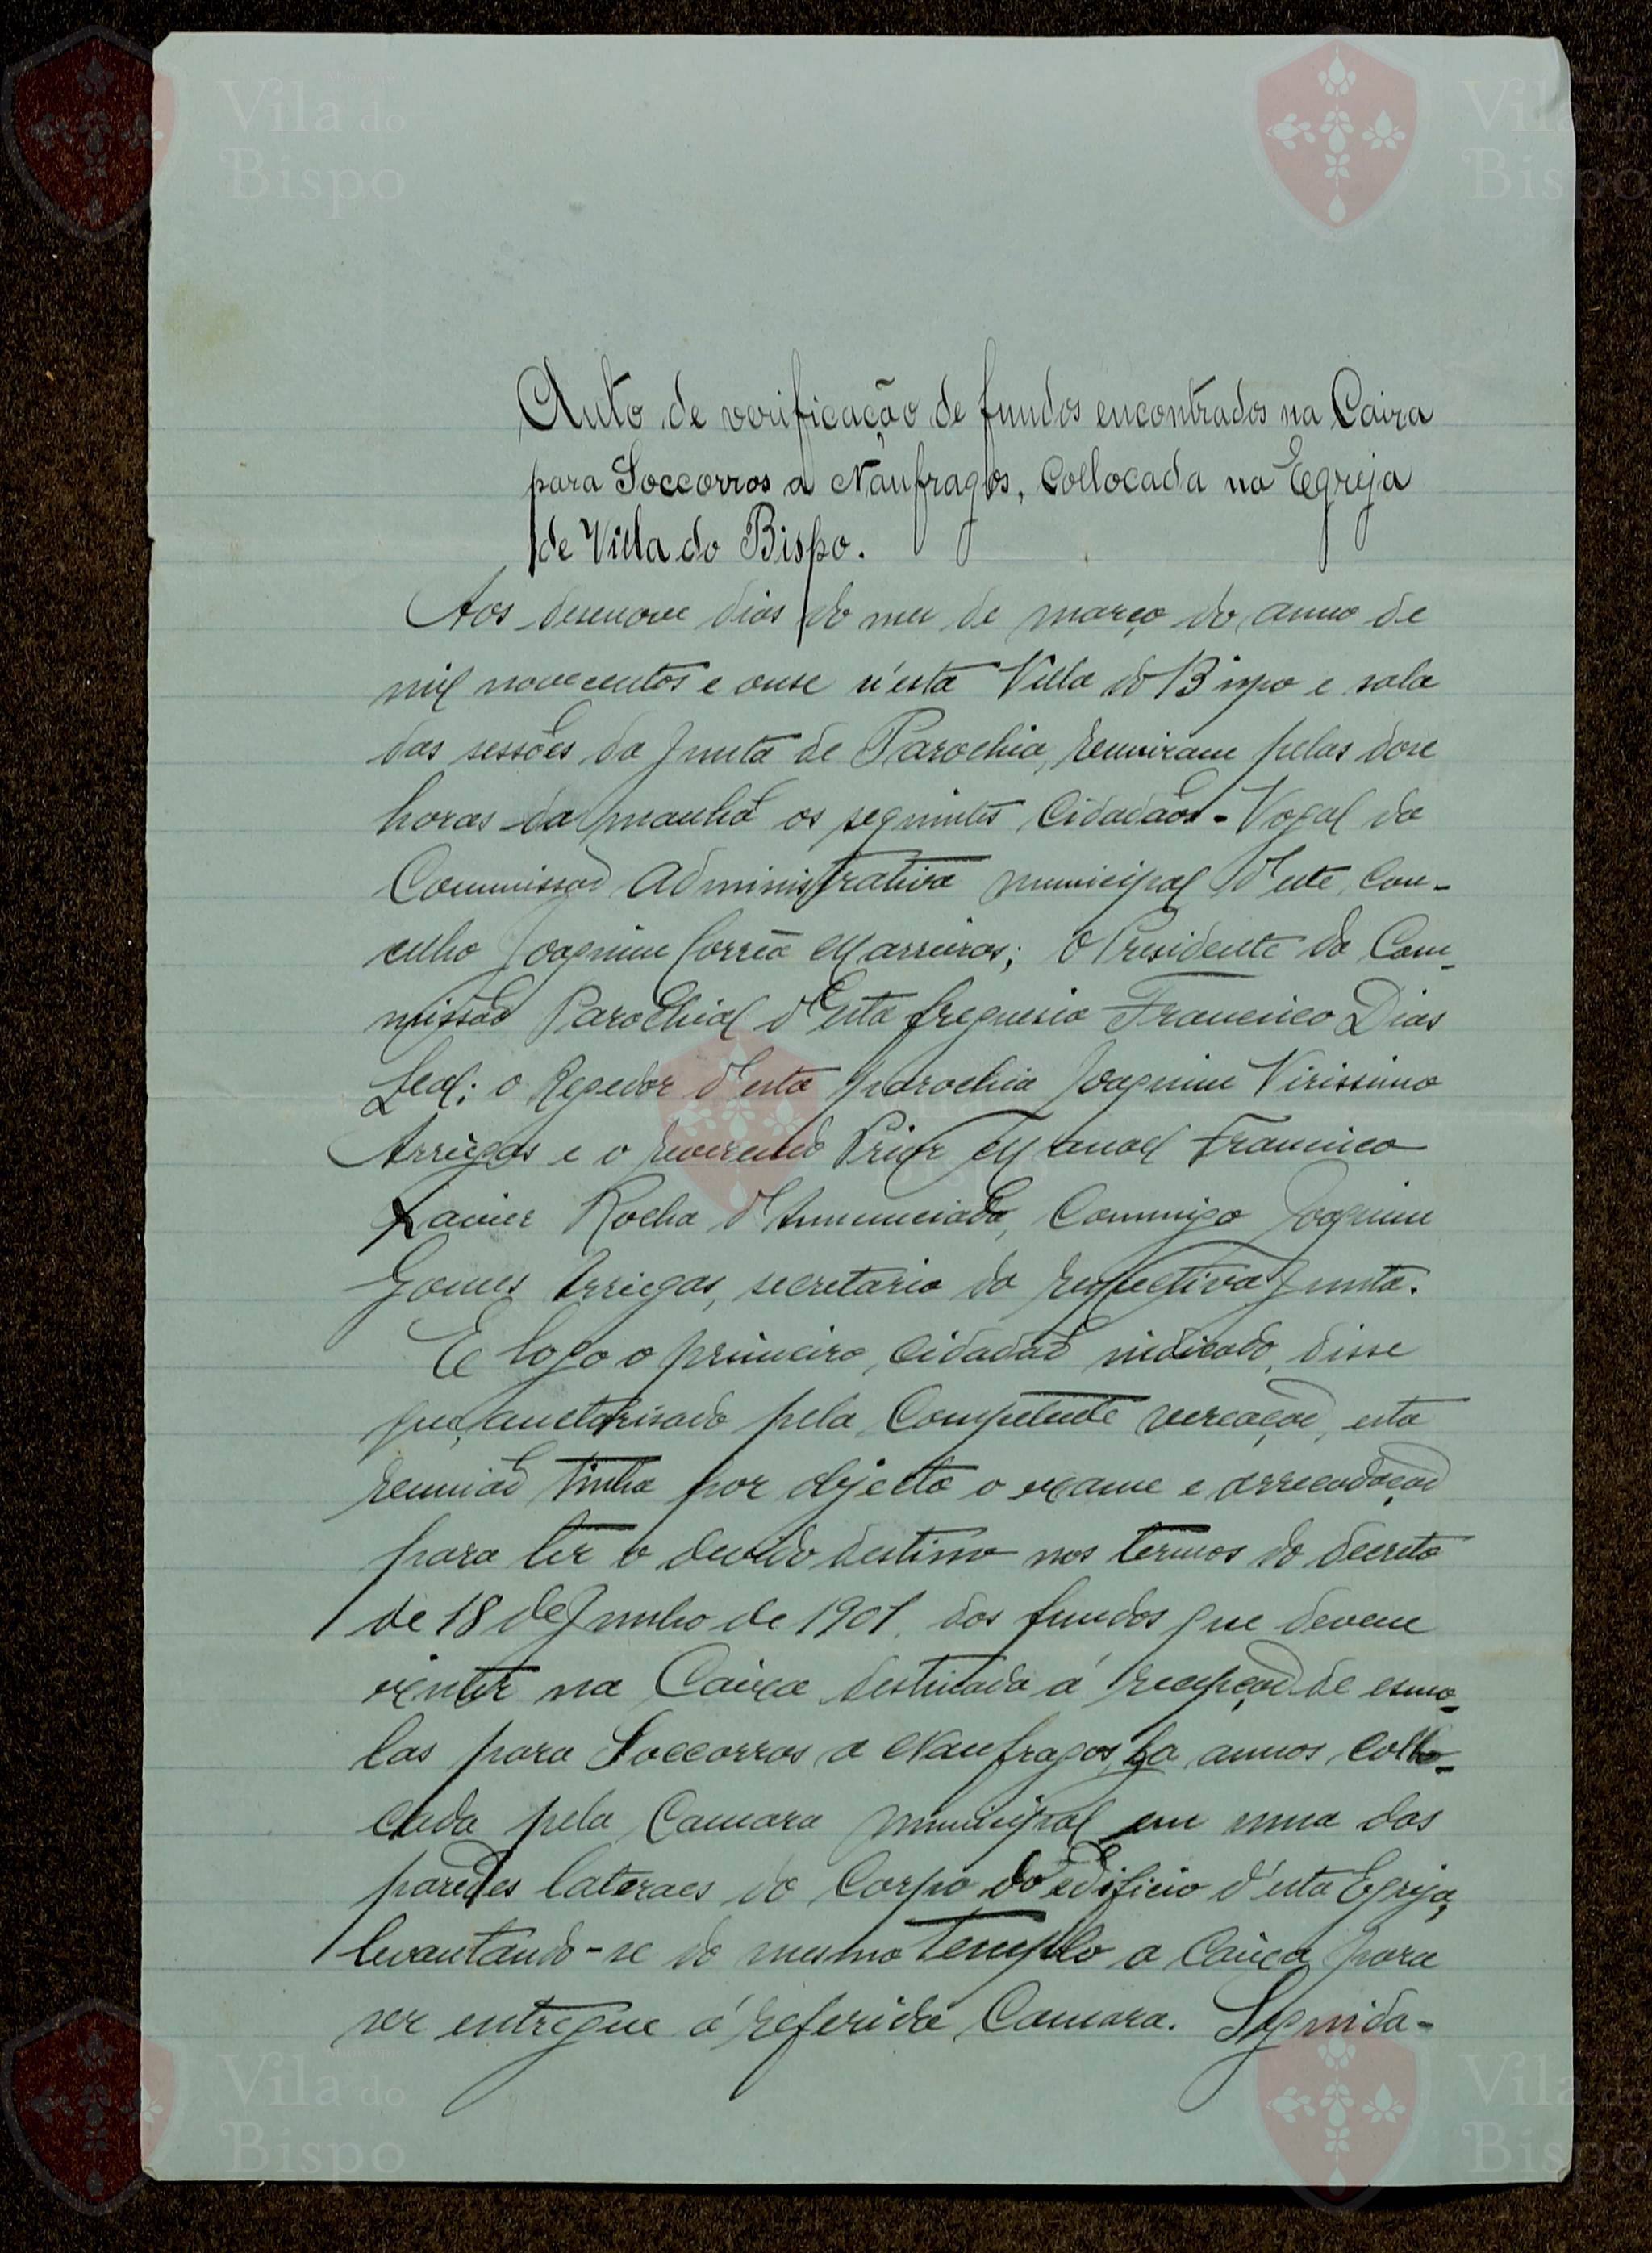 Auto de verificação de fundos encontrados na Caixa
para Soccorros a Naufragos, Collocada na Egreja
de Villa do Bispo.
Aos desenove dias do mez de março do anno de
mil novecentos e onse n'esta Villa do Bispo e sala
das sessões da Junta de Parochia, reuniram pelas dose
horas da manhã os seguintes Cidadãos - Vogal da
Commissão Administrativa municipal d'este Con-
celho Joaquim Corrêa Marreiros; O Presidente da Com-
missão Parochial d'esta freguesia Francisco Dias
Leal; o Regedor d'esta parochia Joaquim Virissimo
Arriegas e o reverendo Prior Manoel Francisco
Xavier Rocha d'Annunciada, Commigo Joaquim
Gomes Arriegas, secretario da respectiva Junta.
E logo o primeiro Cidadão indicado, disse
que, auctorisado pela Competente vereação, esta
reunião tinha por objecto o exame e arrecadação
para ter o devido destino nos termos do decreto
de 18 de Junho de 1901, dos fundos que devem
existir na Caixa destinada á recepção de esmo-
las para Soccorros a Naufragos ha annos collo-
cada pela Camara Municipal em uma das
paredes lateraes do Corpo do edificio d'esta Egreja,
levantando-se do mesmo Templo a Caixa para
ser entregue á referida Camara. Seguida-
Vila do
Bispo
Vila do
Bispo
Vila do
Bispo
Vila do
Bispo
Vila do
Bispo